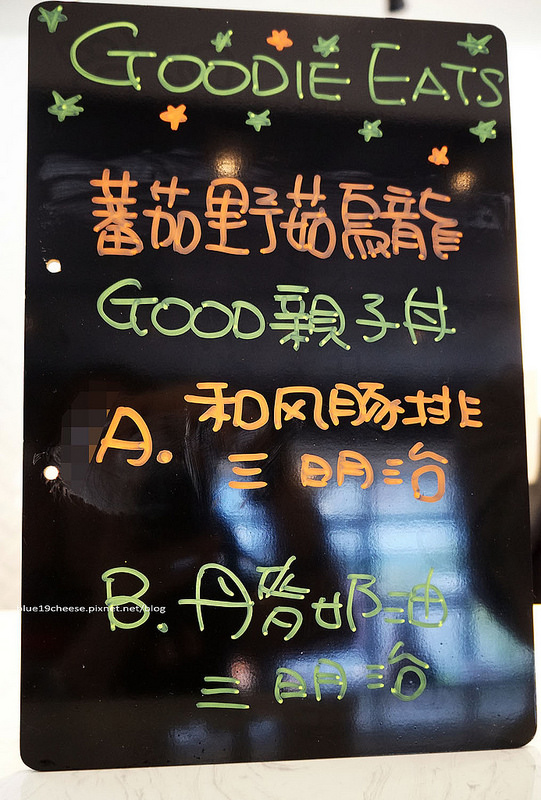 GOODIE EATS
蕃茄野菇烏龍
GOOD親子丼
A. 和风豚排
三明治
blue19cheese.pixnet.net/blog
B. 丹麥奶油
三明治